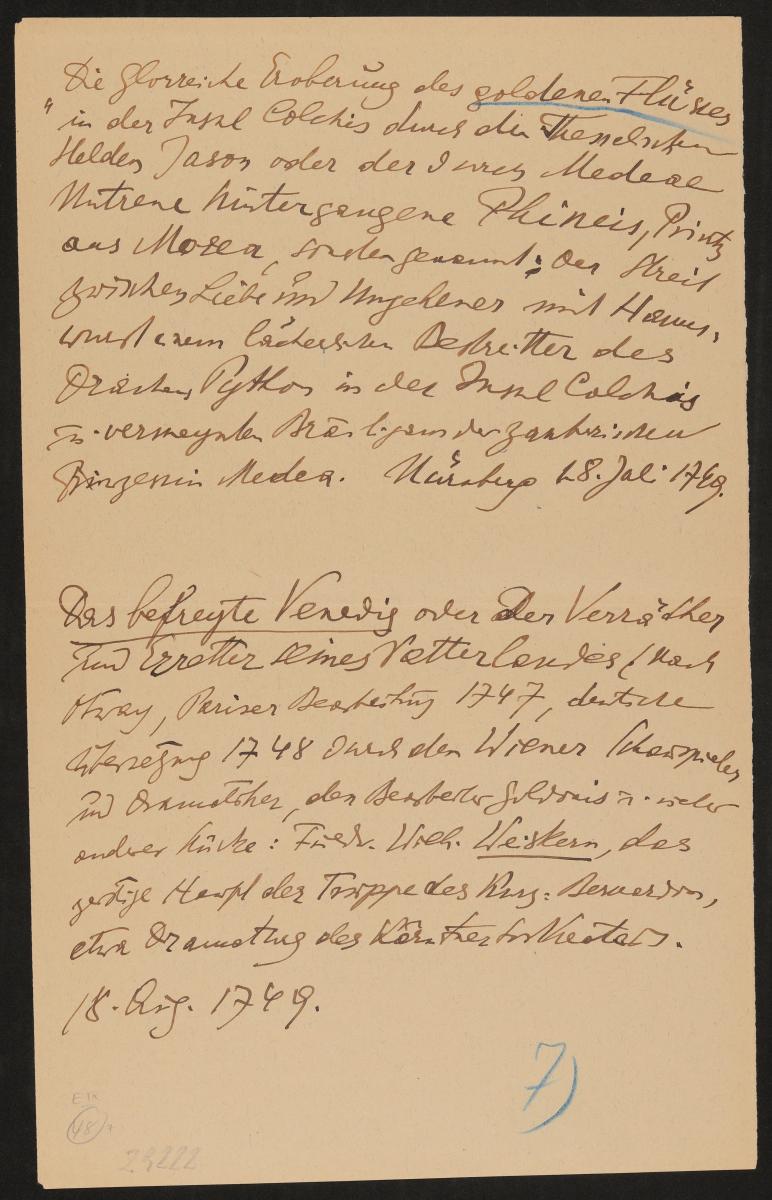 Die Glorreiche Eroberung des goldenen Flüsses
" in der Insel Colchis durch den Thessalischen
Helden Jason oder der durch Medeae
Untreue hintergangene Phineis, Printz
aus Morea, sonsten genannt: Der Streit
zwischen Liebe und Ungeheuer mit Hanns-
wurst einem lächerlichen Bestreitter des
Drachens Python in der Insel Colchis
u. vermeynten Bräutigam der zauberischen
Prinzessin Medea. Nürnberg 28. Juli 1749.
Das befreyte Venedig oder Der Verräther
und Erretter seines Vatterlandes (nach
Otway, Pariser Bearbeitung 1747, deutsche
Übersetzung 1748 durch den Wiener Schauspieler
und Dramatiker, den Bearbeiter Goldonis u. vieler
anderer Stücke: Friedr. Wilh. Weiskern, das
geistige Haupt der Truppe des Kurz-Bernardon,
etwa Dramaturg des Kärntnertortheaters.
18. Aug. 1749.
7)
E IX
48
29222